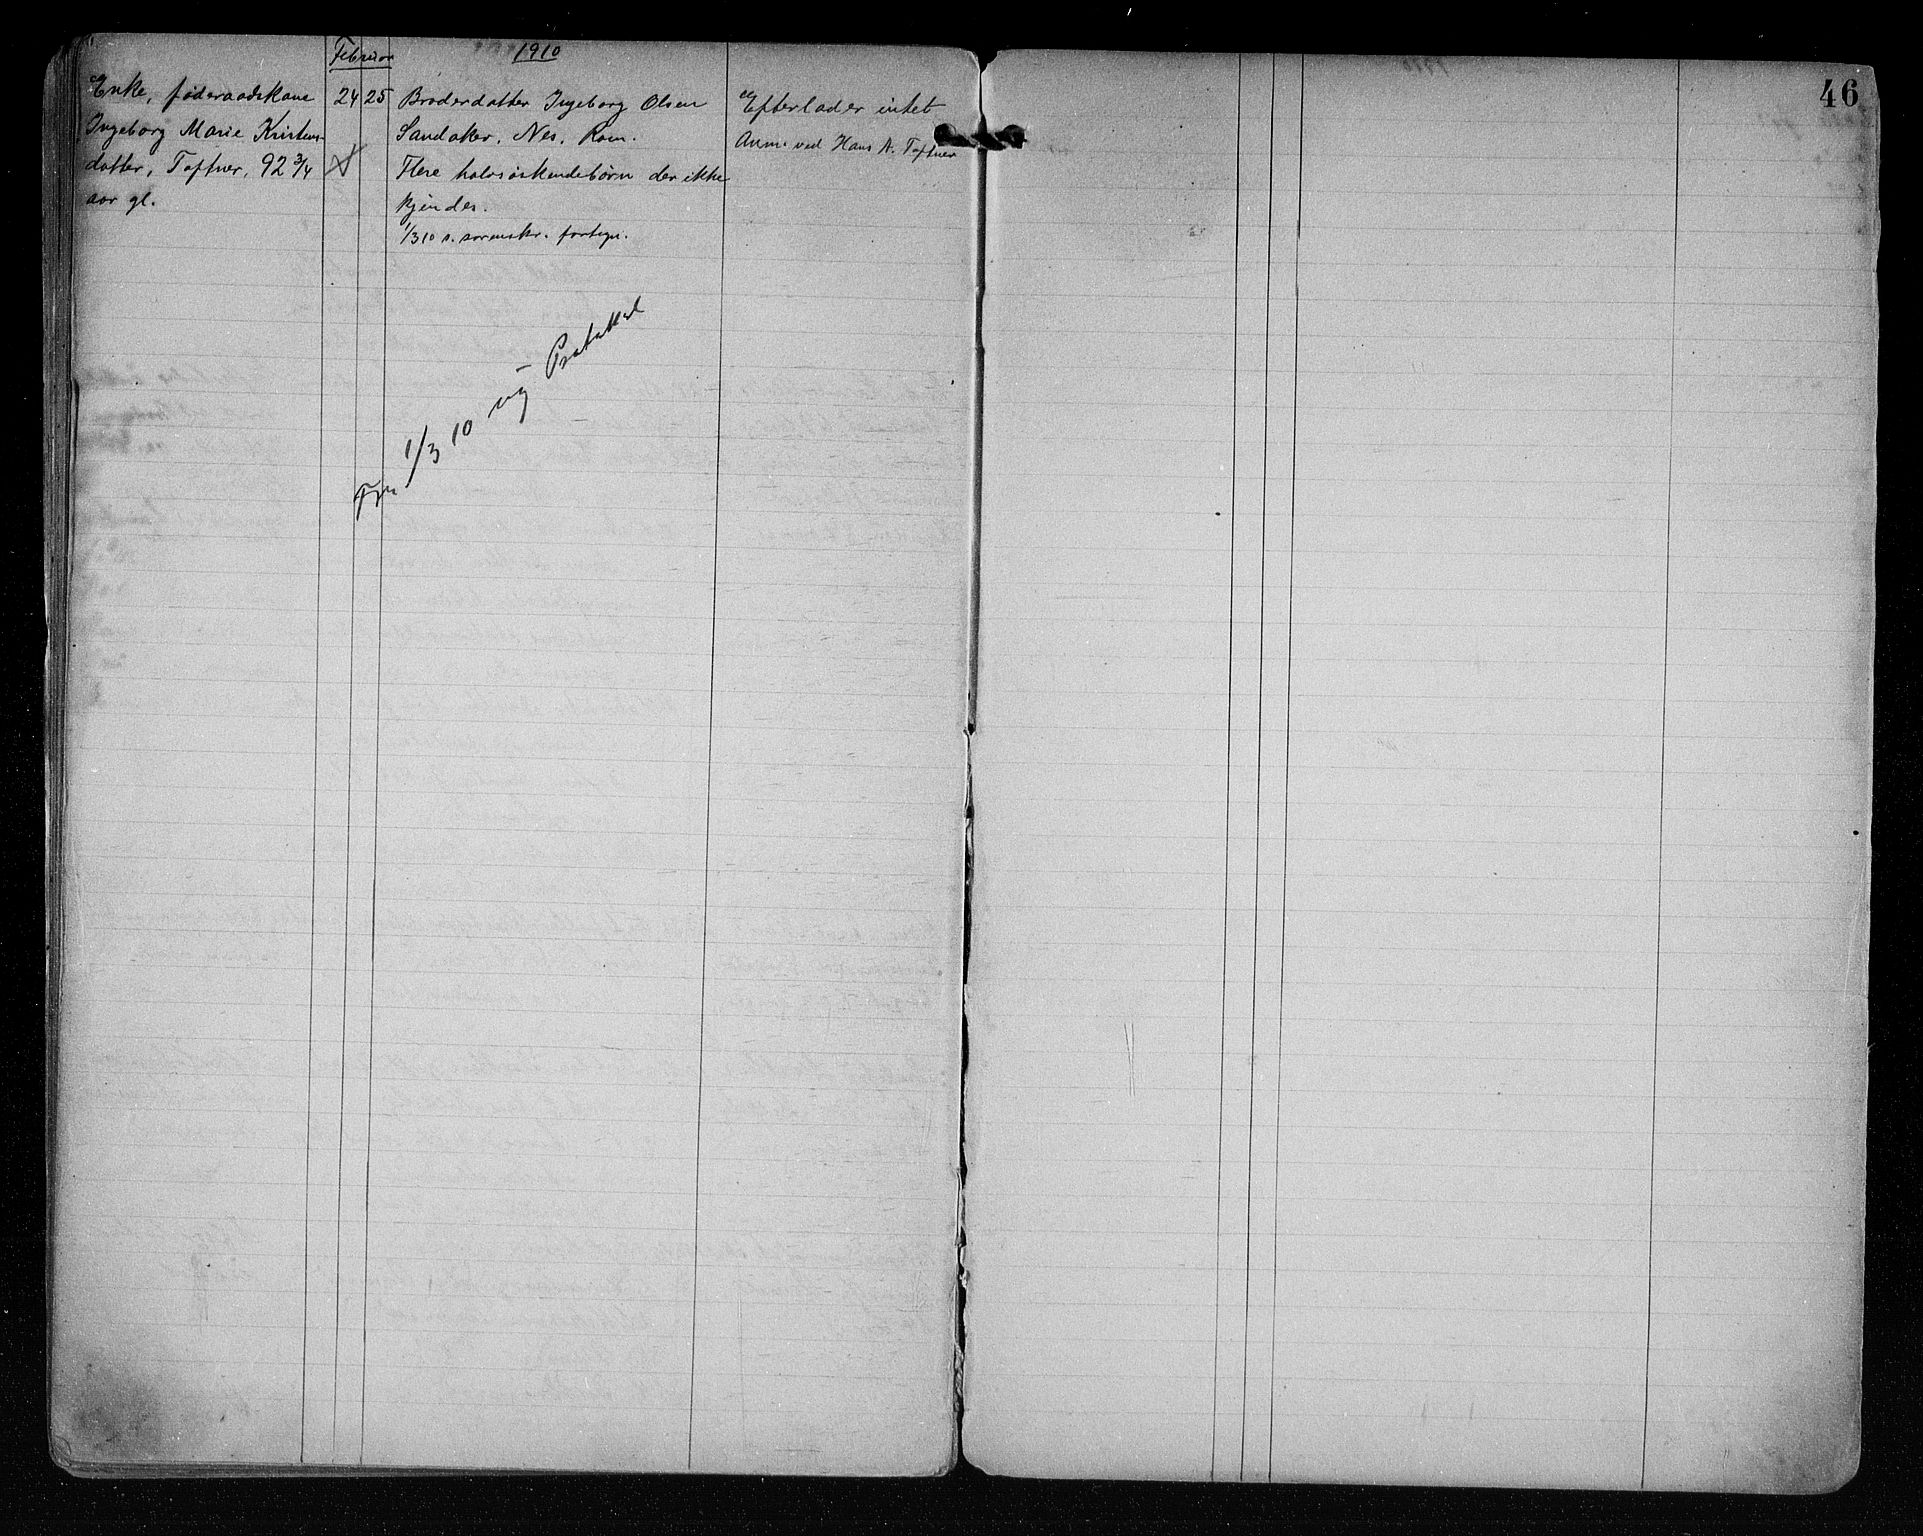 Februar 1910
46
Enke, føderaadskone
Ingeborg Marie Kristens-
datter, Toftner, 92 3/4
aar gl.
24 25
Broderdatter Ingeborg Olsen
Sandaker, Nes, Rom.
Flere halvsøskendebørn der ikke
kjendes.
1/3 10 s. sorenskr. fortegn.
Efterlader intet
Anm. ved Hans A. Toftner
1/3 10 ny Protokol